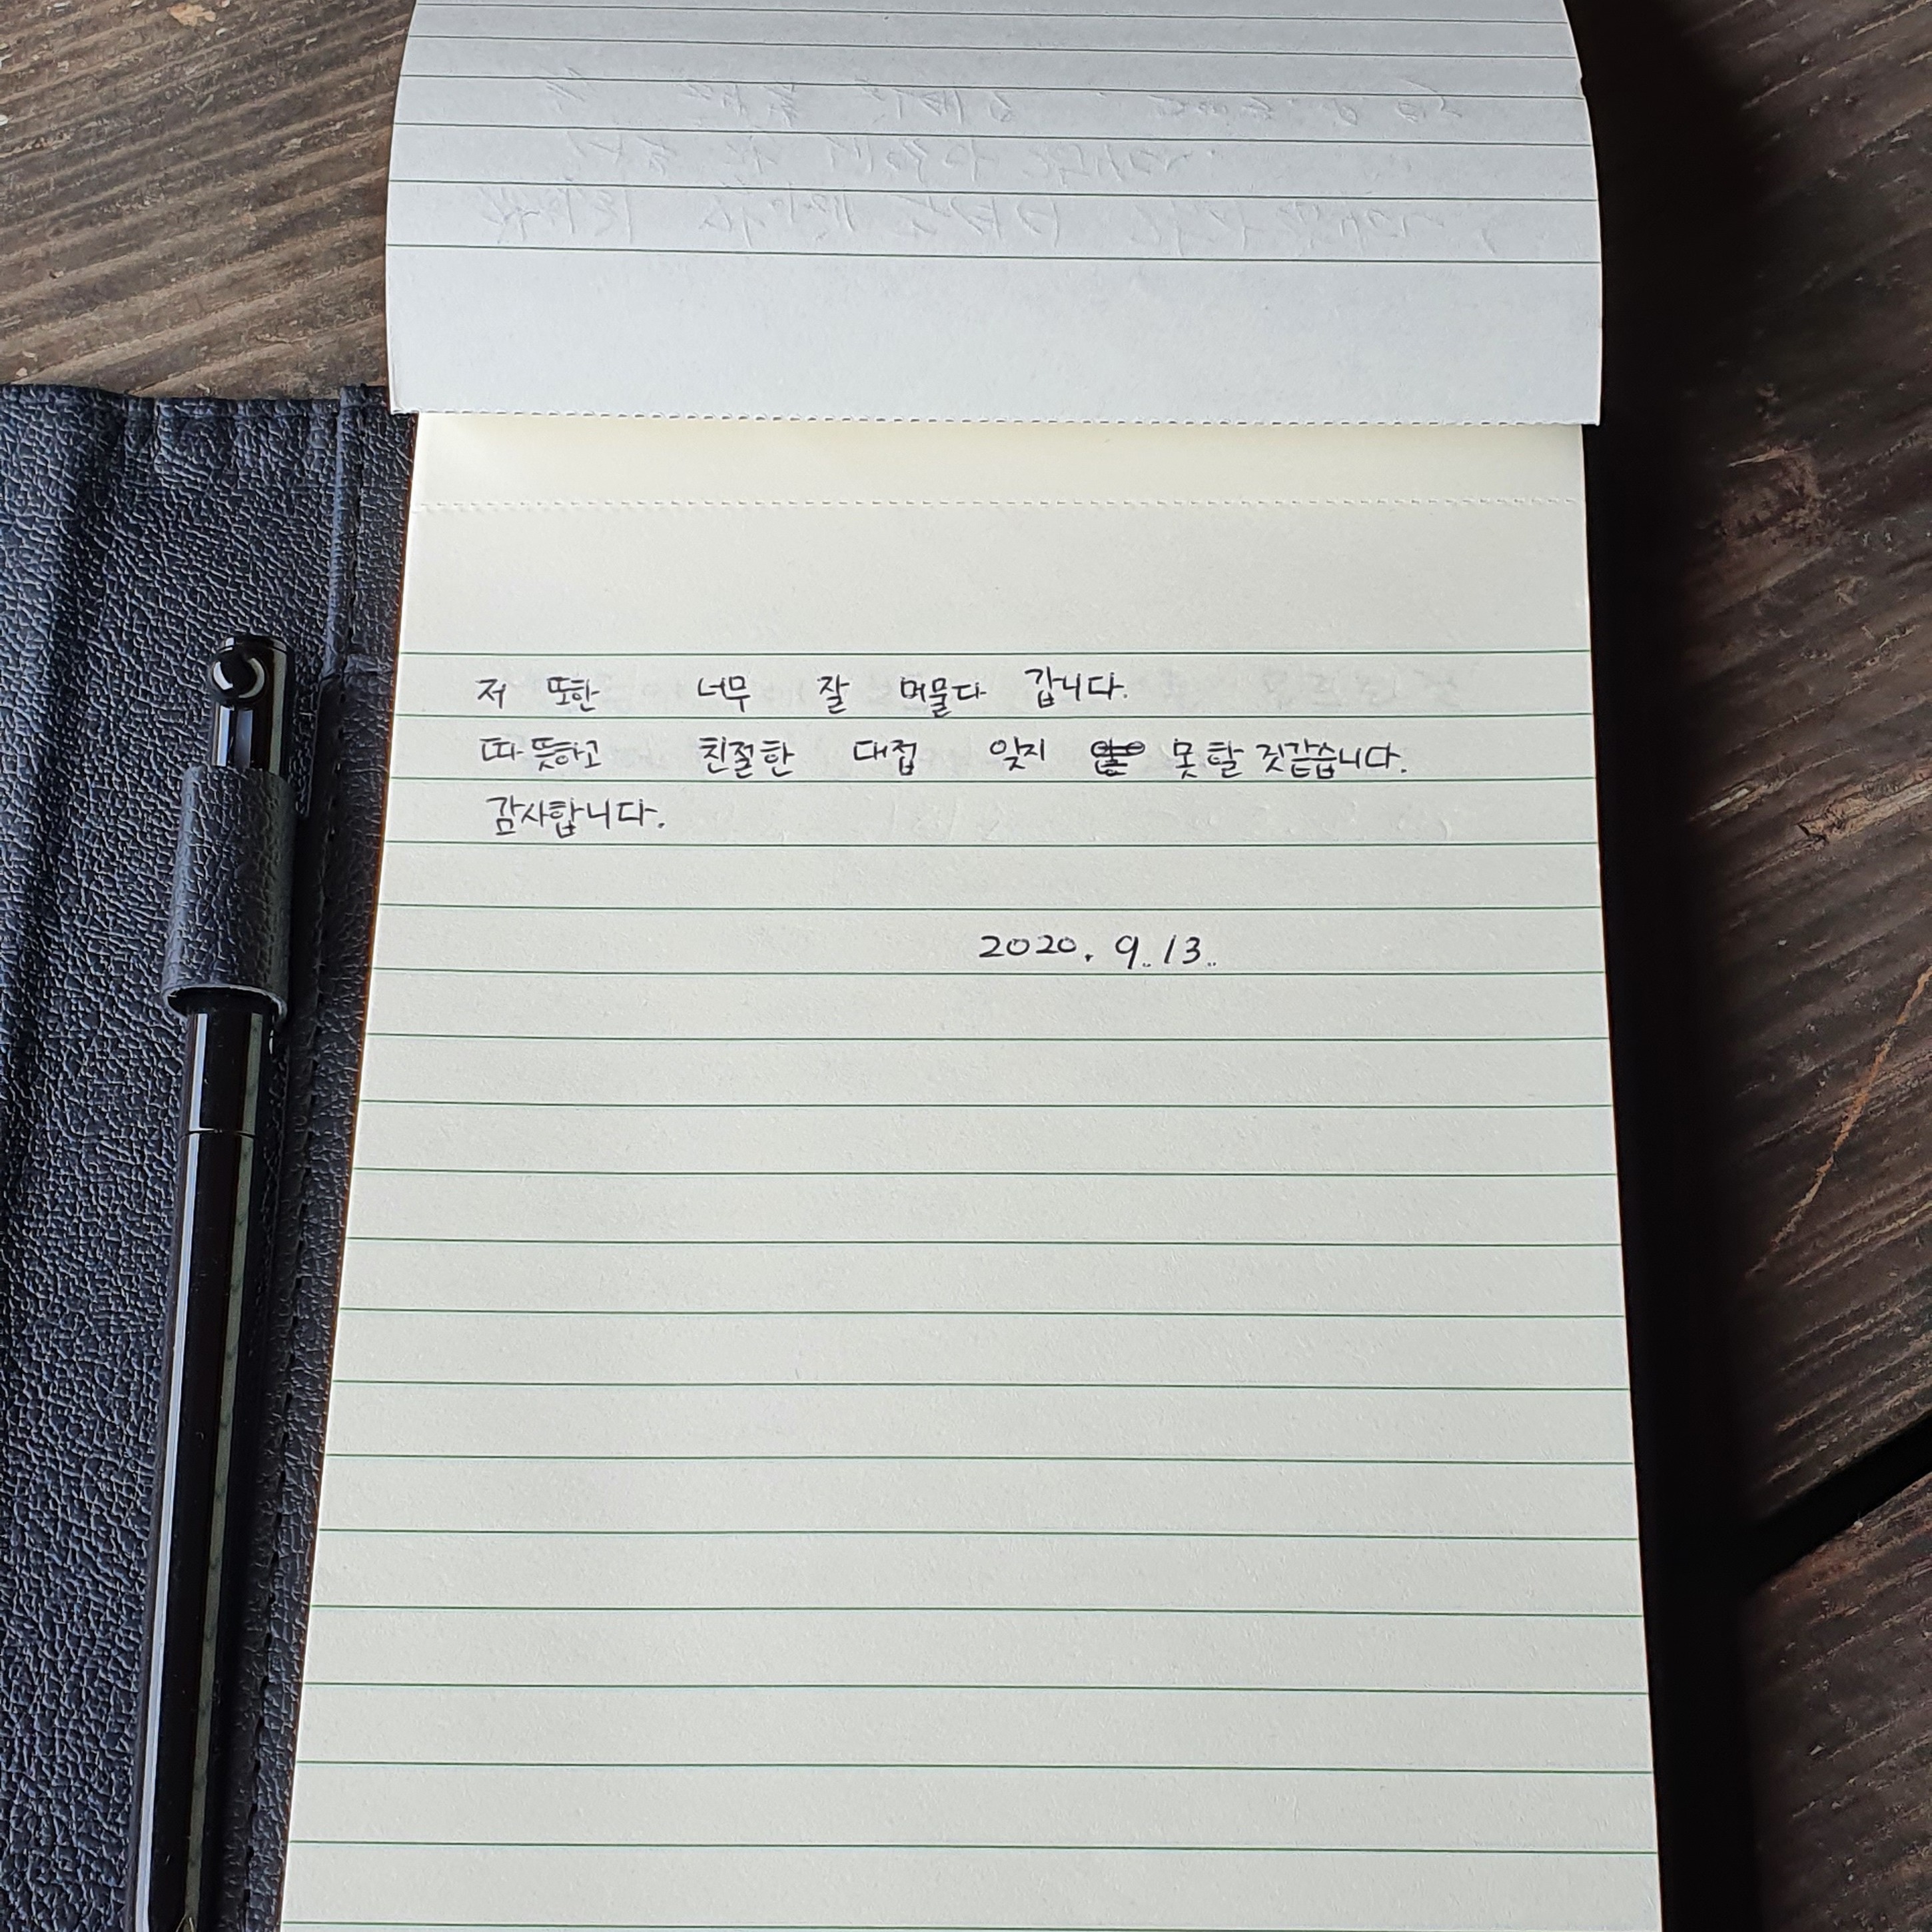 저 또한 너무 잘 머물다 갑니다.
따뜻하고 친절한 대접 잊지 못할 것같습니다.
감사합니다.
2020. 9. 13.